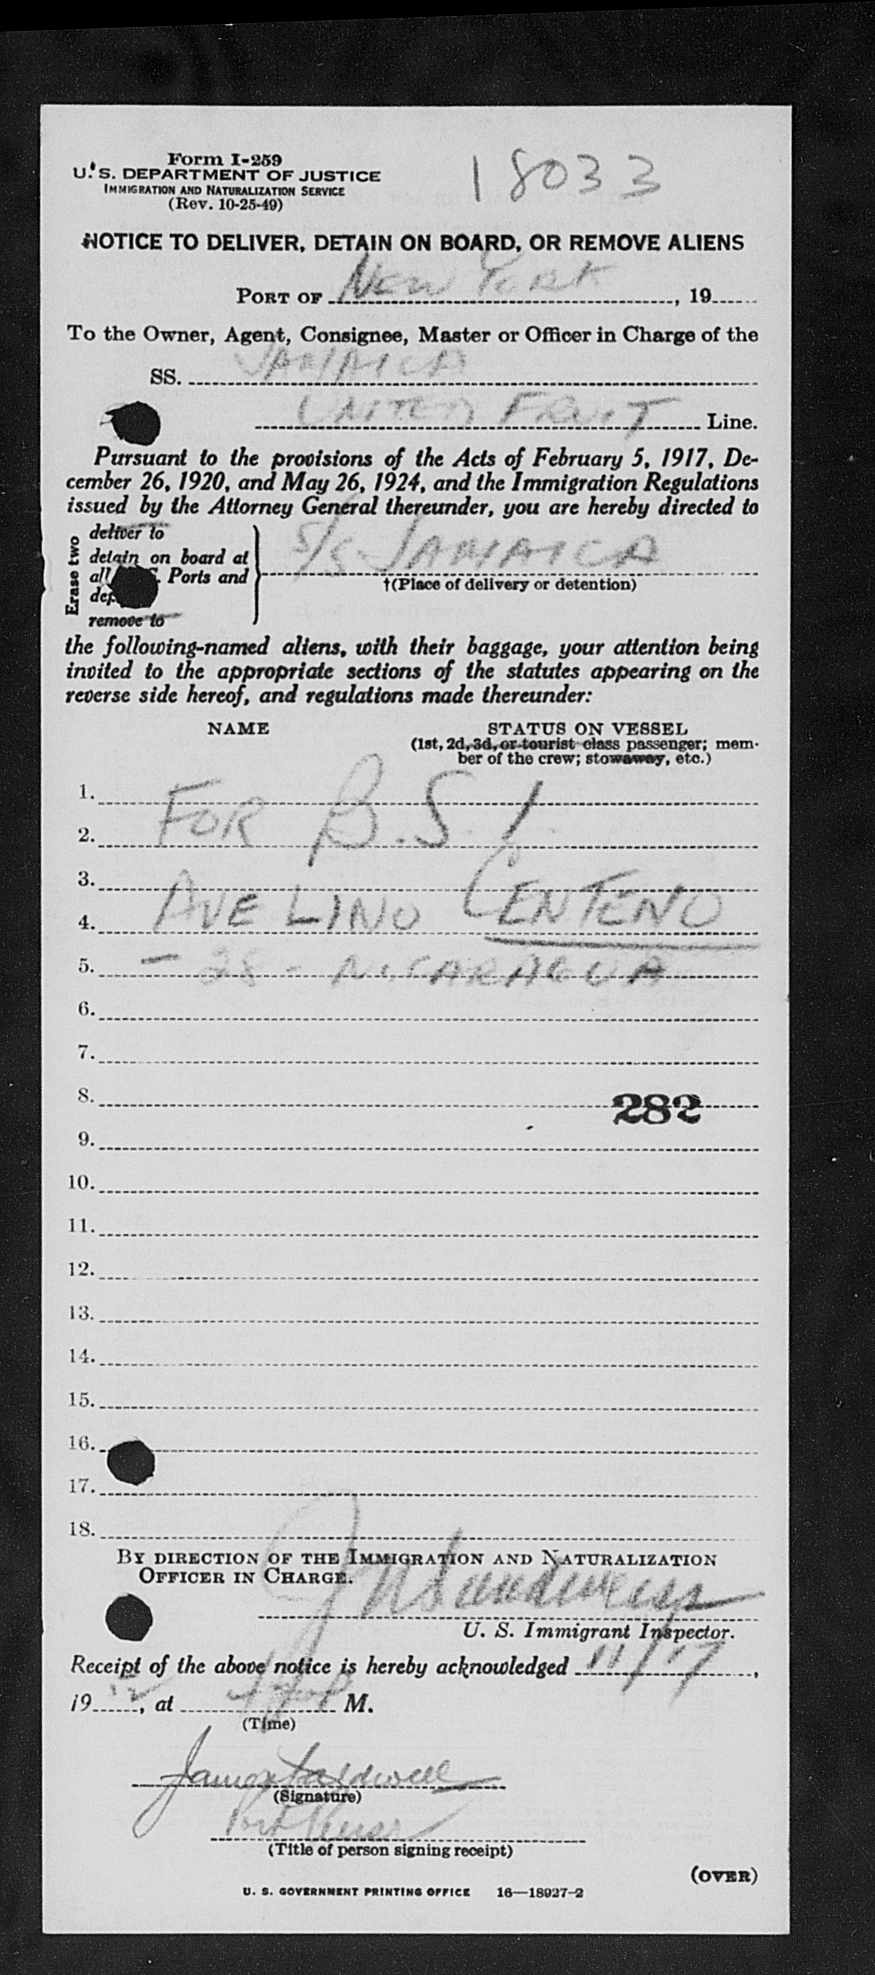 Form I-259
U. S. DEPARTMENT OF JUSTICE
IMMIGRATION AND NATURALIZATION SERVICE
(Rev. 10-25-49)
18033
NOTICE TO DELIVER, DETAIN ON BOARD, OR REMOVE ALIENS
PORT OF NEW YORK, 19
To the Owner, Agent, Consignee, Master or Officer in Charge of the
SS. JAMAICA
UNITED FRUIT Line.
Pursuant to the provisions of the Acts of February 5, 1917, De-
cember 26, 1920, and May 26, 1924, and the Immigration Regulations
issued by the Attorney General thereunder, you are hereby directed to
Erase two
deliver to
detain on board at
all Ports and
remove to
S/S. JAMAICA
†(Place of delivery or detention)
the following-named aliens, with their baggage, your attention being
invited to the appropriate sections of the statutes appearing on the
reverse side hereof, and regulations made thereunder:
NAME STATUS ON VESSEL
(1st, 2d, 3d, or tourist class passenger; mem-
ber of the crew; stowaway, etc.)
1.
2. FOR B.S.I.
3.
4. AVELINO CENTENO
5. - 28 - NICARAGUA
6.
7.
8. 282
9.
10.
11.
12.
13.
14.
15.
16.
17.
18.
BY DIRECTION OF THE IMMIGRATION AND NATURALIZATION
OFFICER IN CHARGE.
U. S. Immigrant Inspector.
Receipt of the above notice is hereby acknowledged 11/17,
19 52, at M.
(Time)
James Caldwell
(Signature)
Port Purser
(Title of person signing receipt)
(OVER)
U. S. GOVERNMENT PRINTING OFFICE 16—18927-2